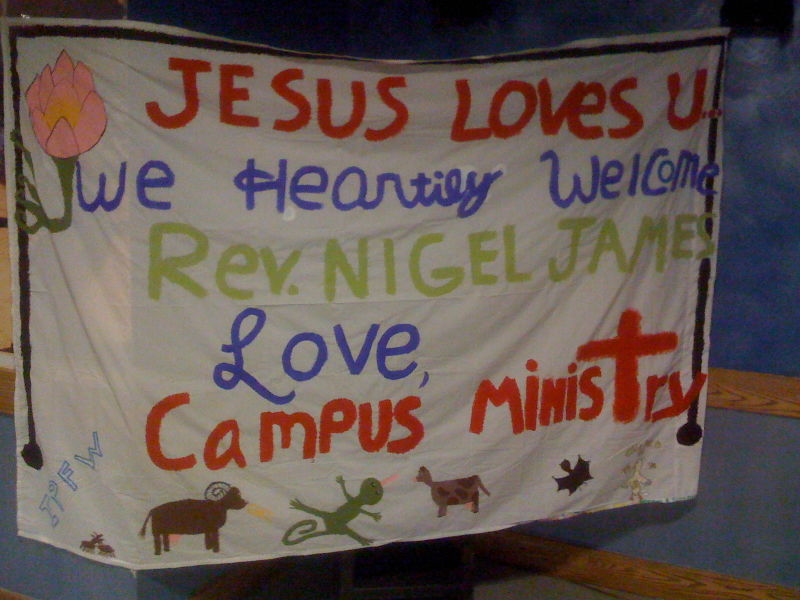 JESUS LOVES U...
WE HEartily WELCOME
Rev. NIGEL JAMES
Love,
CAMPUS MINISTry